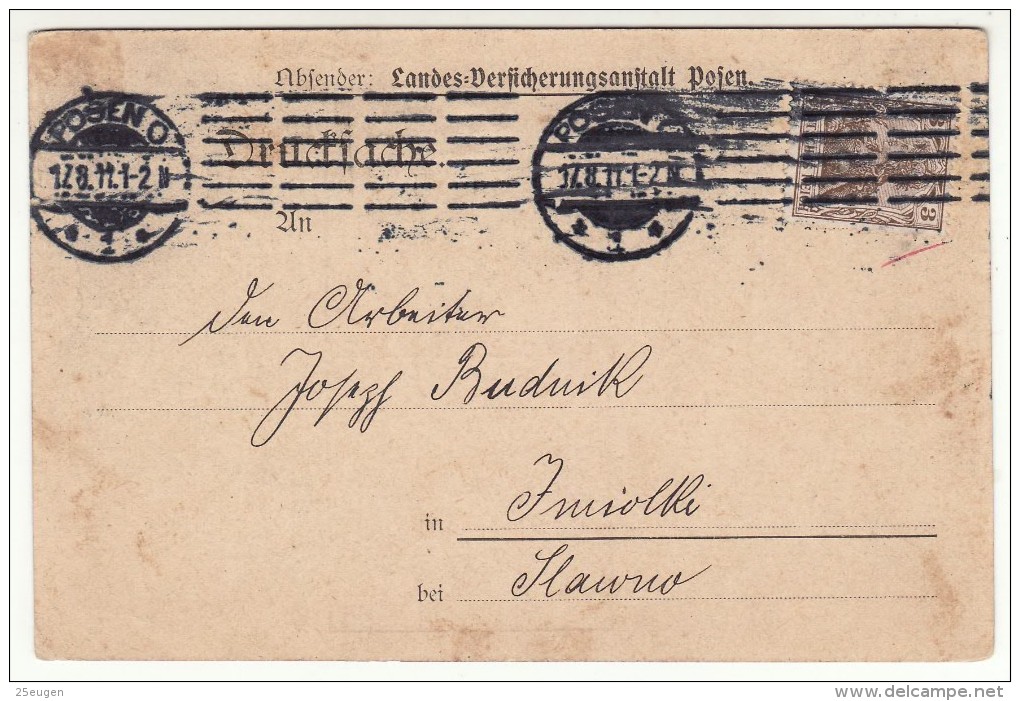 Absender: Landes-Versicherungsanstalt Posen.
POSEN O
17.8.11.1-2 N
* 1 *
Drucksache.
POSEN O
17.8.11.1-2 N
* 1 *
3
3
An
den Arbeiter
Joseph Budnik
in Imiolki
bei Slawno
25eugen
www.delcampe.net